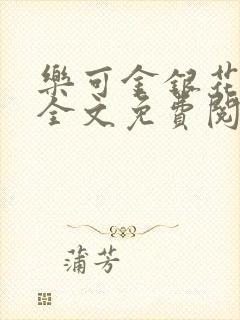 樂可金銀花
全文免費閱
蒲芳